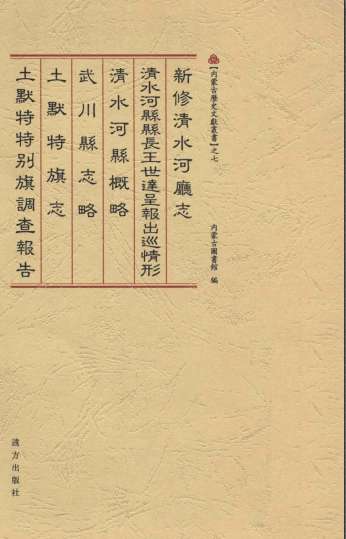 【内蒙古歷史文獻叢書】之七
内蒙古圖書館 編
新修清水河廳志
清水河縣縣長王世達呈報出巡情形
清水河縣概略
武川縣志略
土默特旗志
土默特特别旗調查報告
遠方出版社